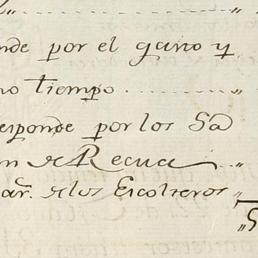 nde por el gano y
no tiempo .......... "
esponde por los Sa
n de Recua ..... "
ar. de los Escolteros "